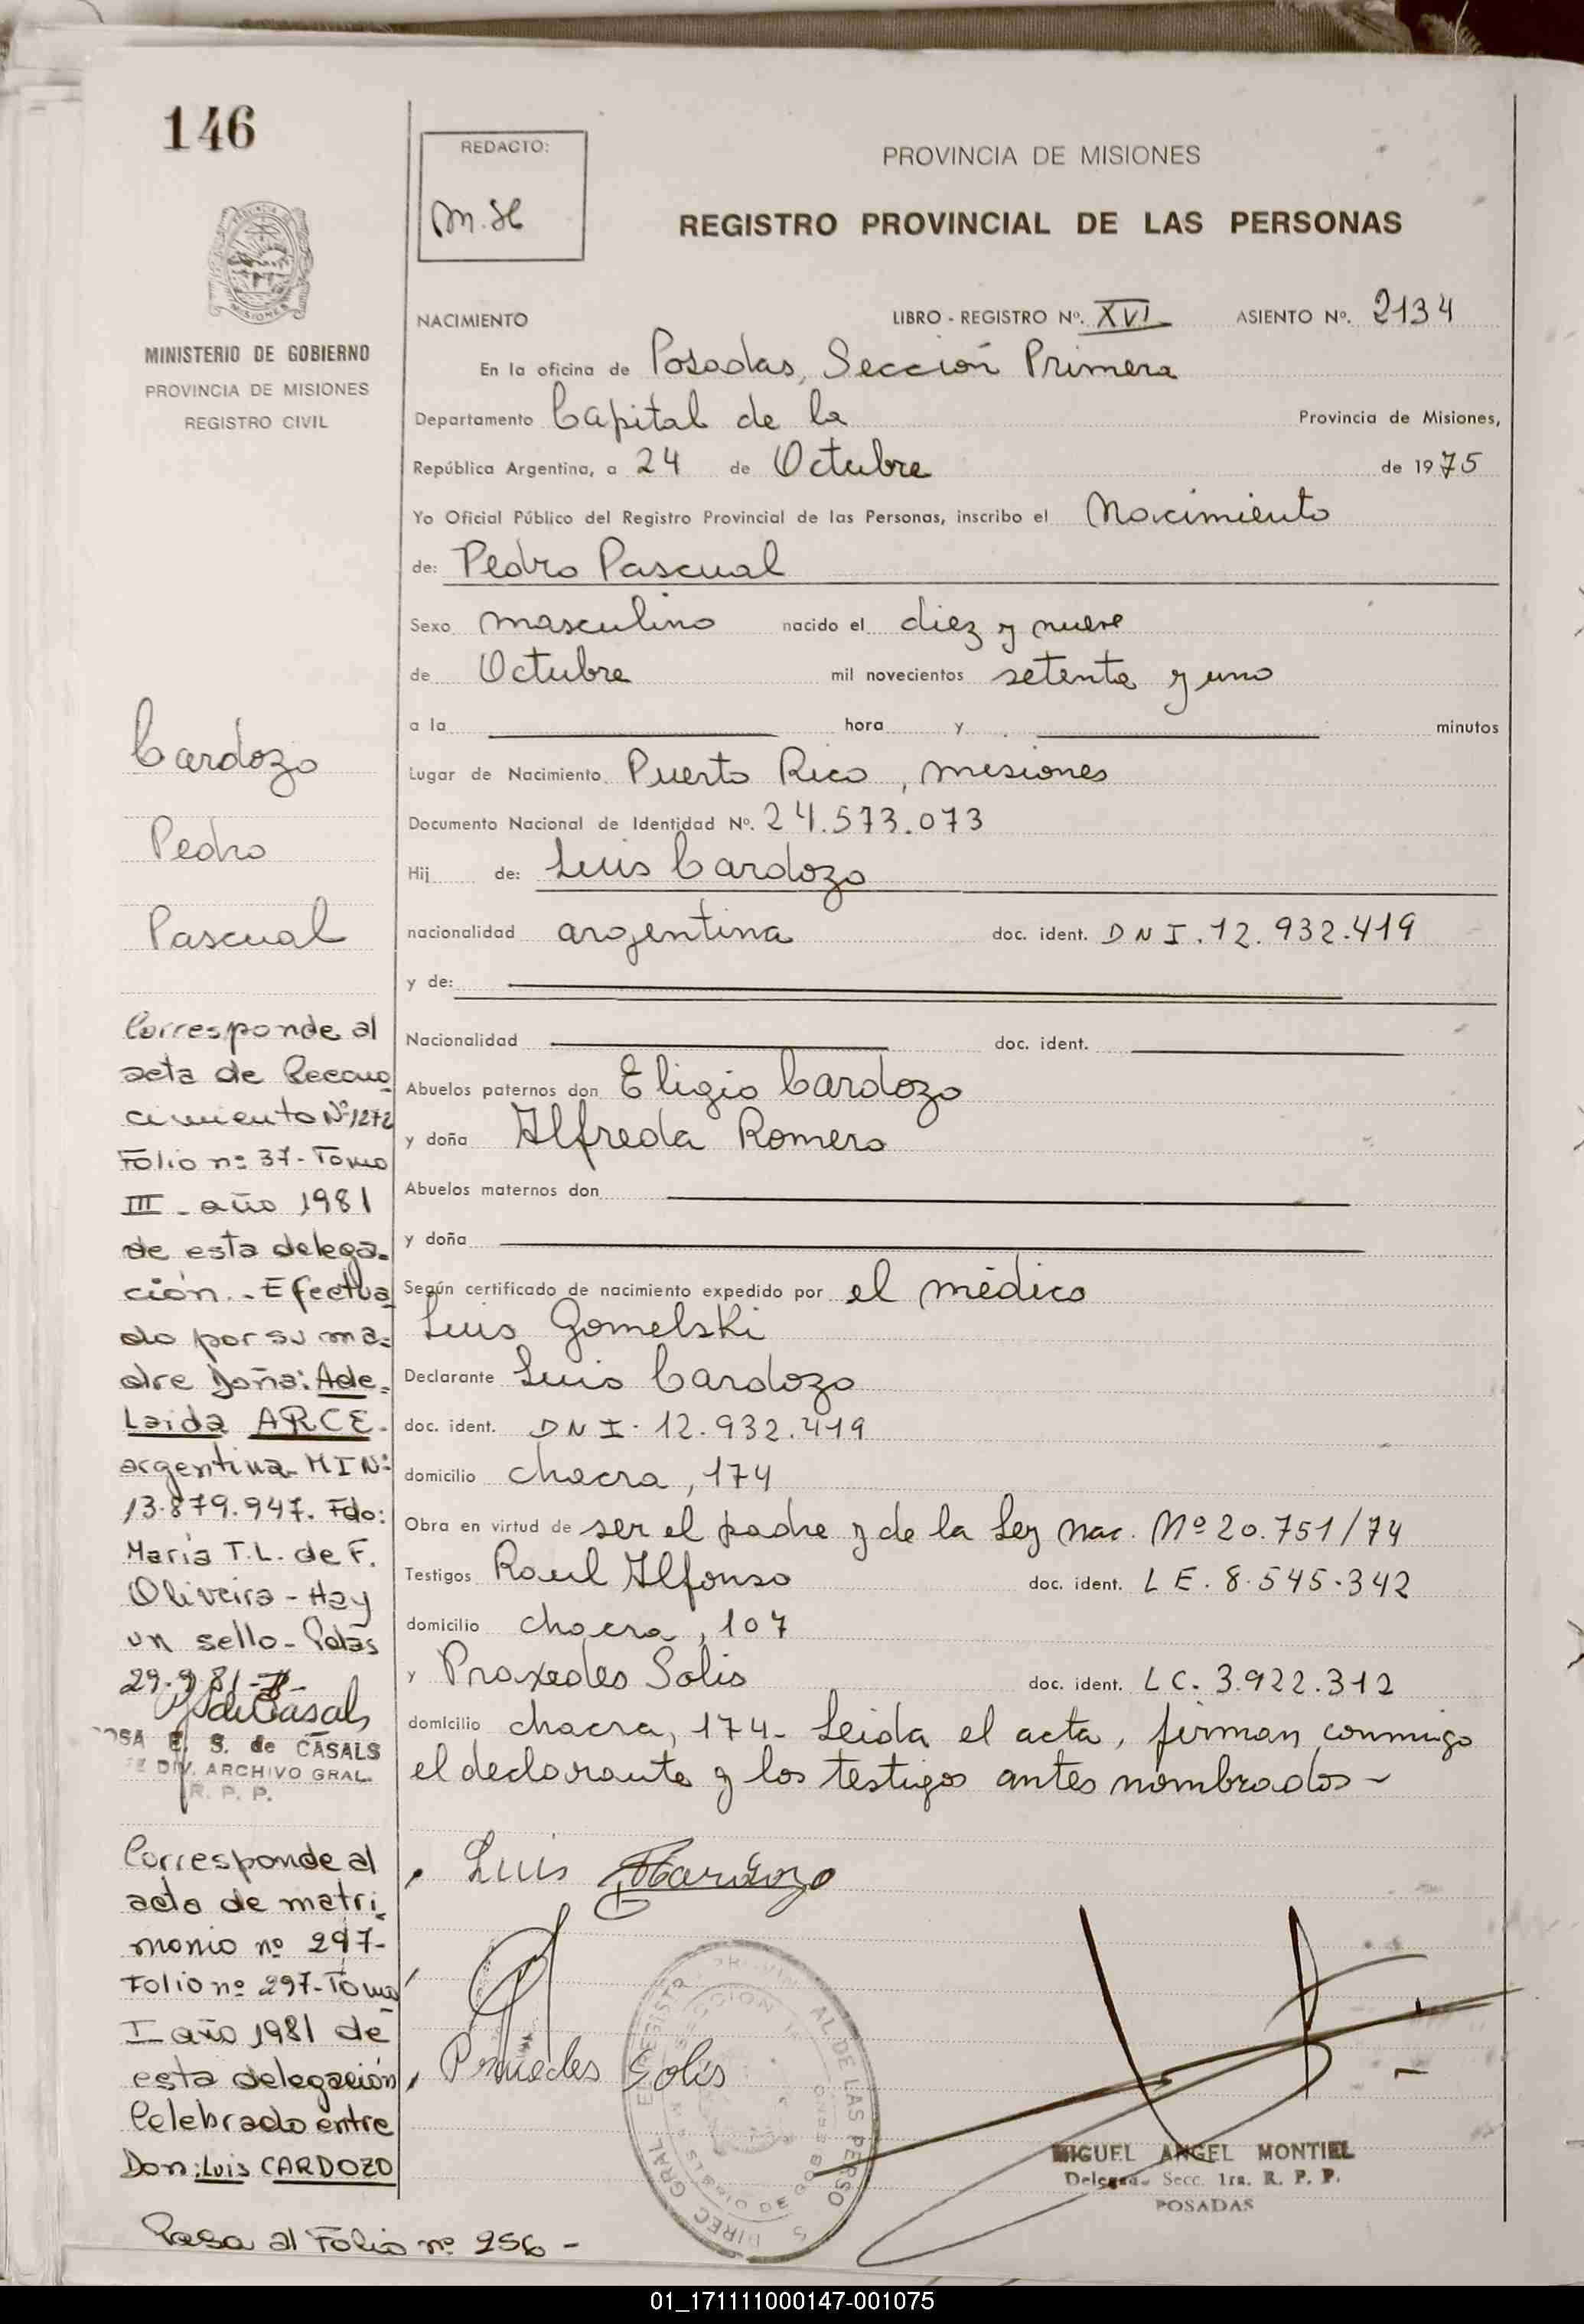 146
MINISTERIO DE GOBIERNO
PROVINCIA DE MISIONES
REGISTRO CIVIL
Cardozo
Pedro
Pascual
Corresponde al
acta de Recono
cimiento Nº 1272
Folio nº 37 - Tomo
III - año 1981
de esta delega-
ción. - Efectua
do por su ma-
dre Doña: Ade-
laida ARCE-
argentina - MIN:
13.879.947. Fdo:
Maria T.L. de F.
Oliveira - Hay
un sello - Pdas
29-9-81-
SdeCasals
OSA E. S. de CASALS
DIV. ARCHIVO GRAL.
R. P. P.
Corresponde al
acta de matri-
monio nº 297-
Folio nº 297-Tomo
I año 1981 de
esta delegación
Celebrado entre
Don: Luis CARDOZO
Pasa al Folio nº 256 -
REDACTO:
PROVINCIA DE MISIONES
REGISTRO PROVINCIAL DE LAS PERSONAS
NACIMIENTO LIBRO - REGISTRO Nº. XVI ASIENTO Nº. 2134
En la oficina de Posadas, Sección Primera
Departamento Capital de la Provincia de Misiones,
República Argentina, a 24 de Octubre de 1975
Yo Oficial Público del Registro Provincial de las Personas, inscribo el Nacimiento
de: Pedro Pascual
Sexo masculino nacido el diez y nueve
de Octubre mil novecientos setenta y uno
a la hora y minutos
Lugar de Nacimiento Puerto Rico, misiones
Documento Nacional de Identidad Nº. 24.573.073
Hij de: Luis Cardozo
nacionalidad argentina doc. ident. DNI. 12.932.419
y de:
Nacionalidad doc. ident.
Abuelos paternos don Eligio Cardozo
y doña Alfreda Romero
Abuelos maternos don
y doña
Según certificado de nacimiento expedido por el médico
Luis Gomelski
Declarante Luis Cardozo
doc. ident. DNI. 12.932.419
domicilio chacra, 174
Obra en virtud de ser el padre y de la Ley nac. Nº 20.751/74
Testigos Raul Alfonso doc. ident. LE. 8.545.342
domicilio chacra, 107
y Praxedes Solis doc. ident. LC. 3.922.312
domicilio chacra, 174- Leida el acta, firman conmigo
el declarante y los testigos antes nombrados -
Luis Cardozo
Praxedes Solis
MIGUEL ANGEL MONTIEL
Delegado Secc. 1ra. R. P. P.
POSADAS
01_171111000147-001075